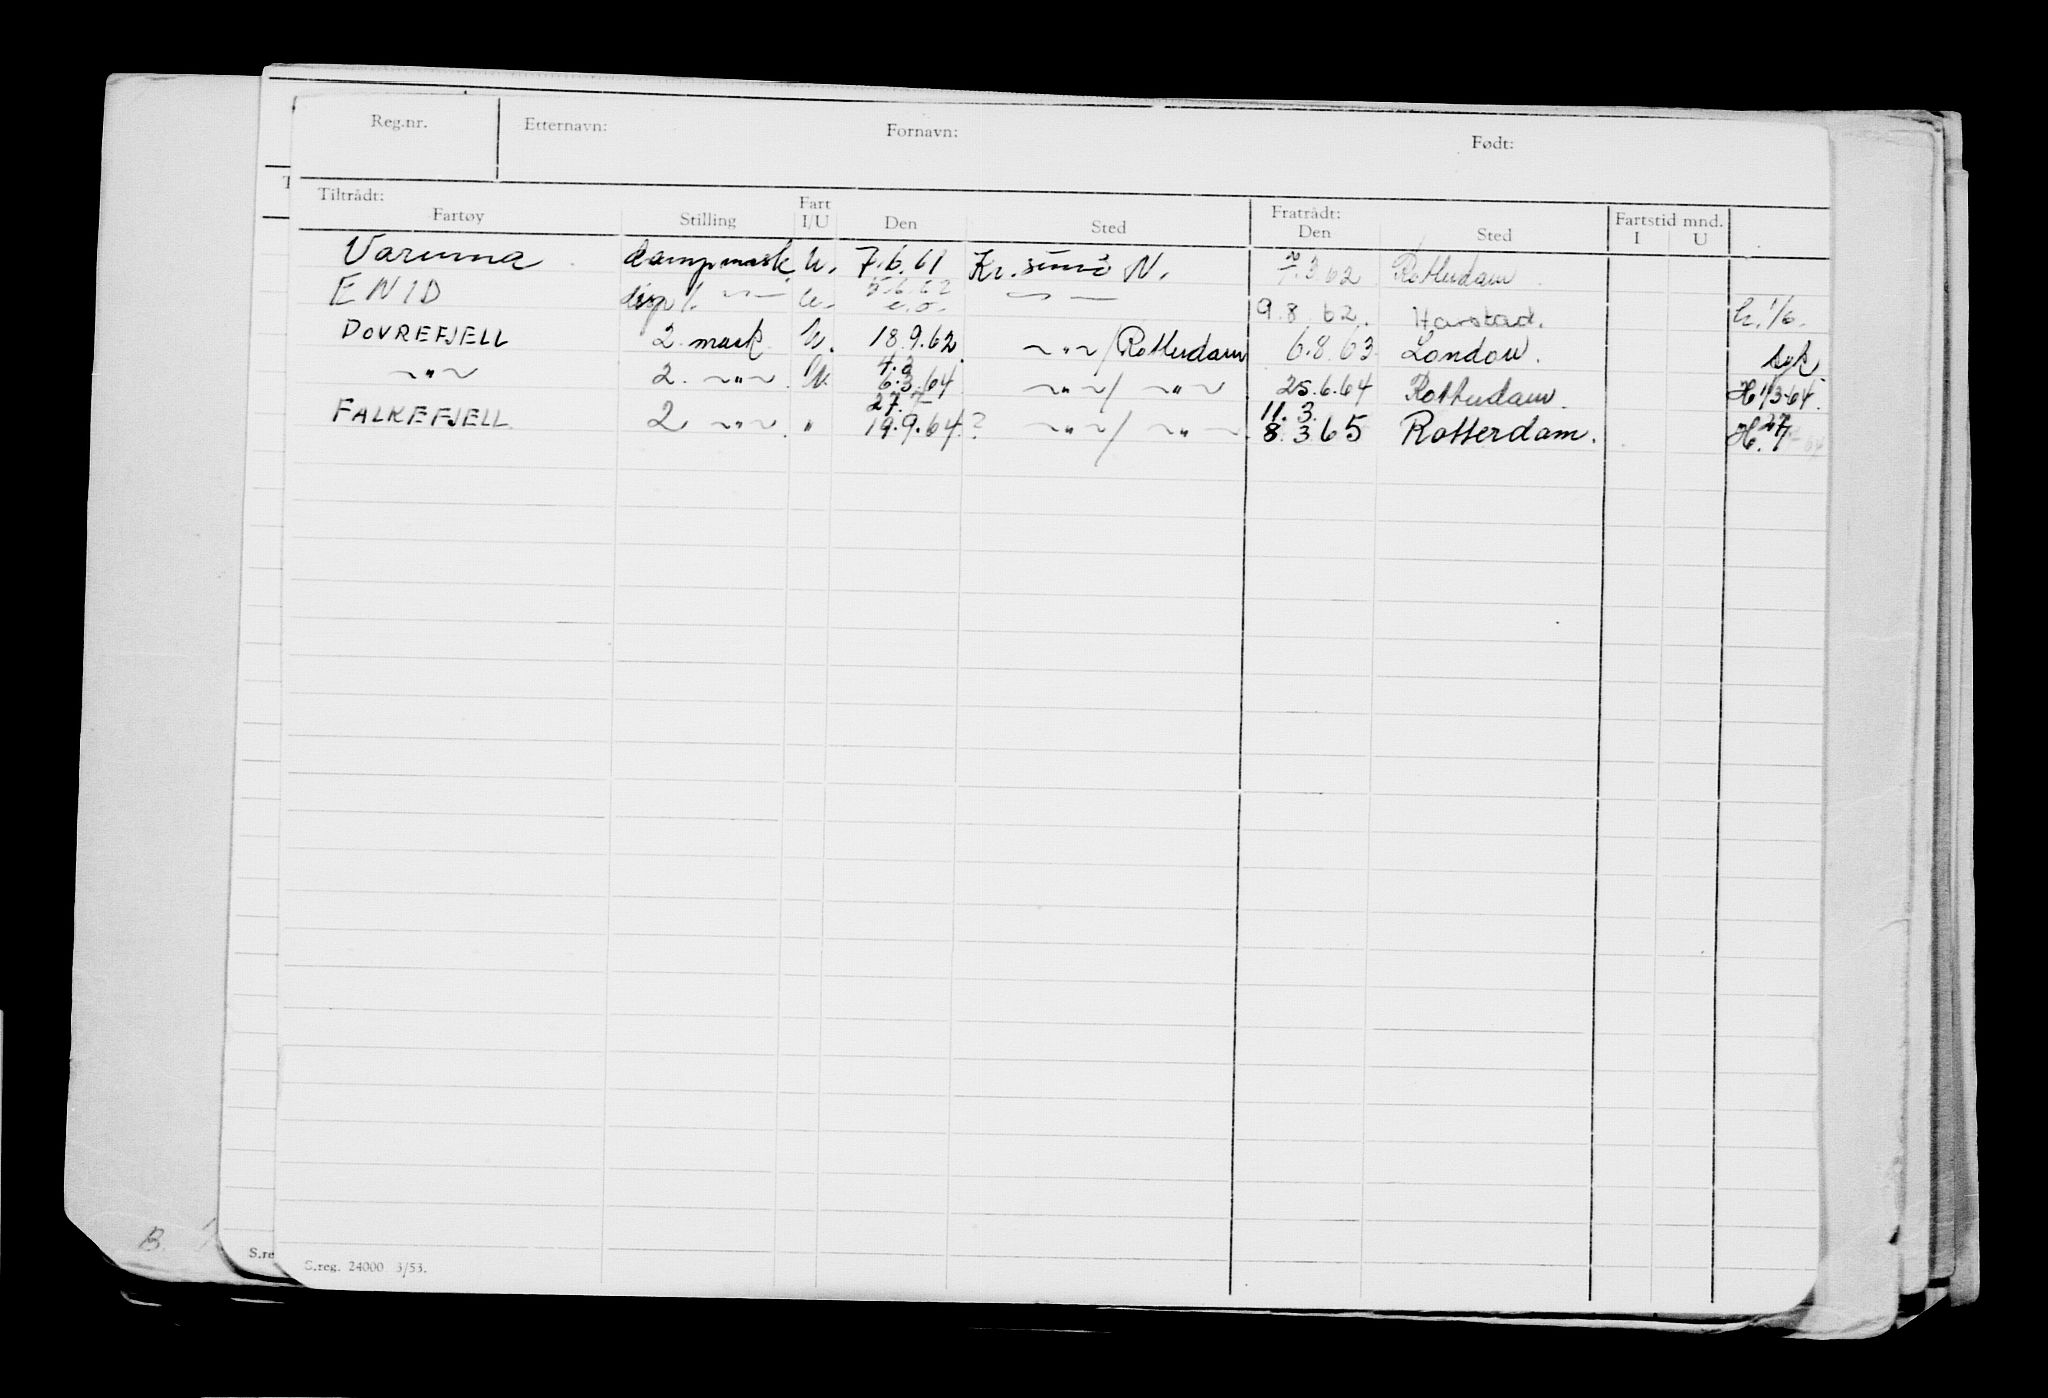 Reg.nr. Etternavn: Fornavn: Født:
Tiltrådt: Fratrådt: Fartstid mnd.
Fartøy Stilling Fart I/U Den Sted Den Sted I U
Varuna dampmask. U. 7.6.61 Kr.sund N. 3.62 Rotterdam
ENID disp. 〜〃〜 U. 5.6.62 〜〃〜 9.8.62. Harstad. h. 1/6.
DOVREFJELL 2. mask. U. 18.9.62. 〜〃〜/Rotterdam 6.8.63. London. syk
4.3
〜〃〜 2. 〜〃〜. U. 6.3.64 〜〃〜/ 〜〃〜 25.6.64 Rotterdam. H 1/3-64.
27.7 11.3.
FALKEFJELL 2 〜〃〜. 〃 19.9.64.? 〜〃〜/ 〜〃〜. 8.3.65 Rotterdam. H. 27/7-64
B.
S.re
S.reg. 24000 3/53.